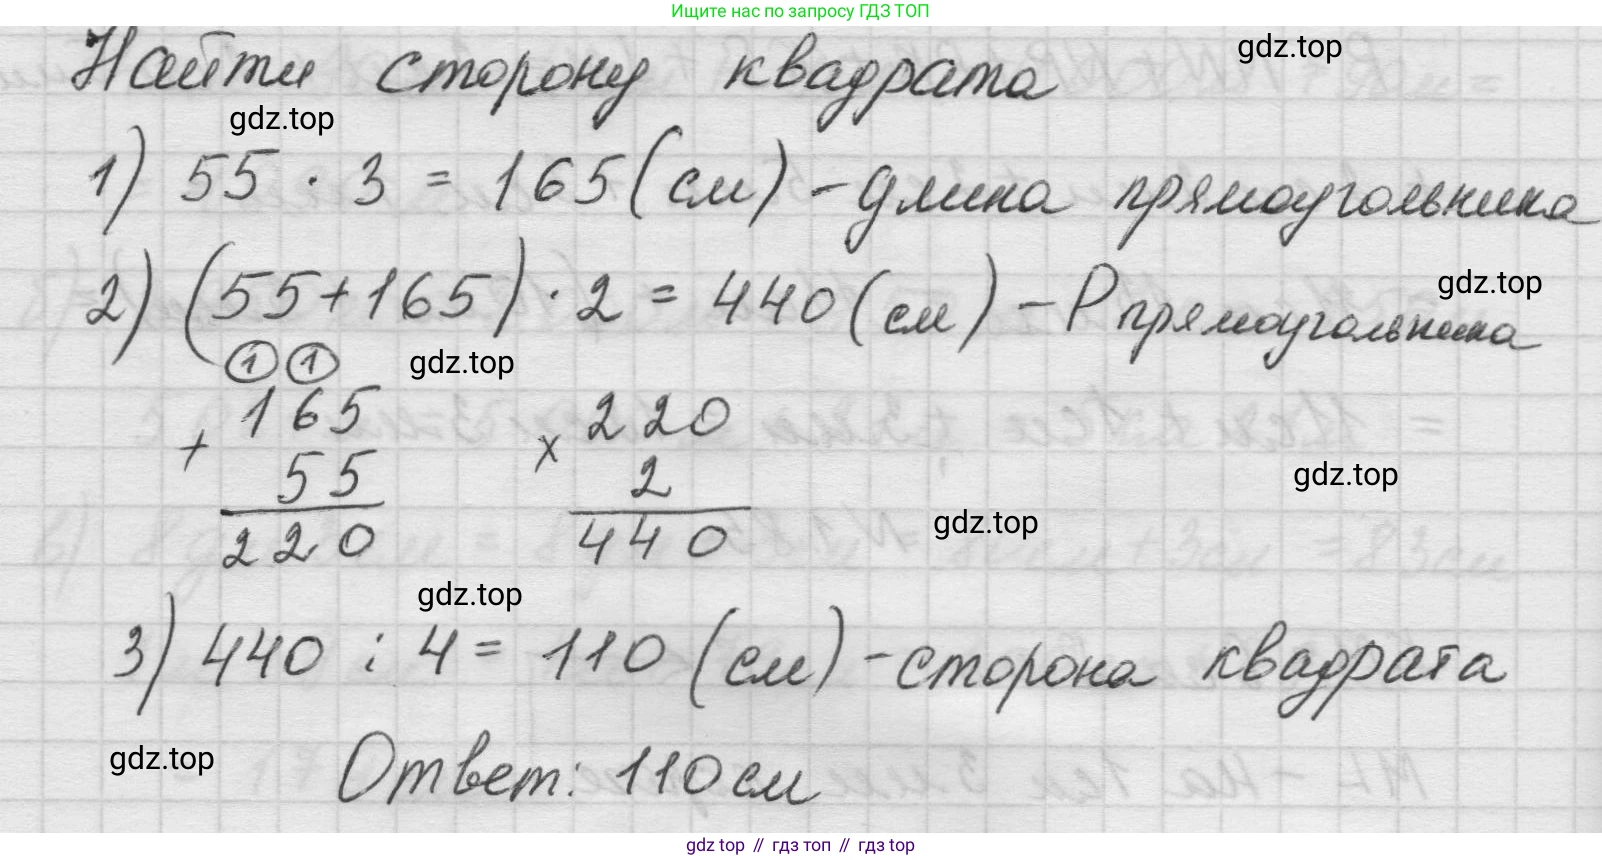 Ищите нас по запросу ГДЗ ТОП
Найти сторону квадрата
gdz.top
gdz.top
1) 55 · 3 = 165 (см) - длина прямоугольника
2) (55+165) · 2 = 440 (см) - P прямоугольника
gdz.top
1 1
gdz.top
165
+ 55
220
220
× 2
440
gdz.top
gdz.top
gdz.top
3) 440 : 4 = 110 (см) - сторона квадрата
gdz.top
Ответ: 110 см
gdz.top // гдз топ // гдз top